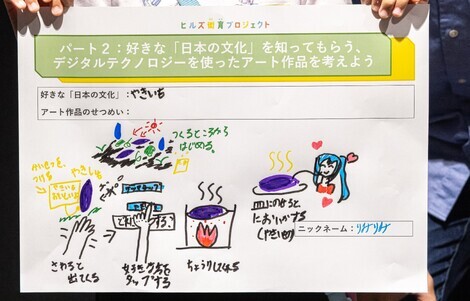 ヒルズ街育プロジェクト
パート2：好きな「日本の文化」を知ってもらう、
デジタルテクノロジーを使ったアート作品を考えよう
好きな「日本の文化」：やきいも
アート作品のせつめい：
つくるところから
はじめる。
やきいも
おいしい
さわると
出てくる
タップする
ちょうりしてくれる
皿にのせると
においがする
(やきいもの)
ニックネーム：